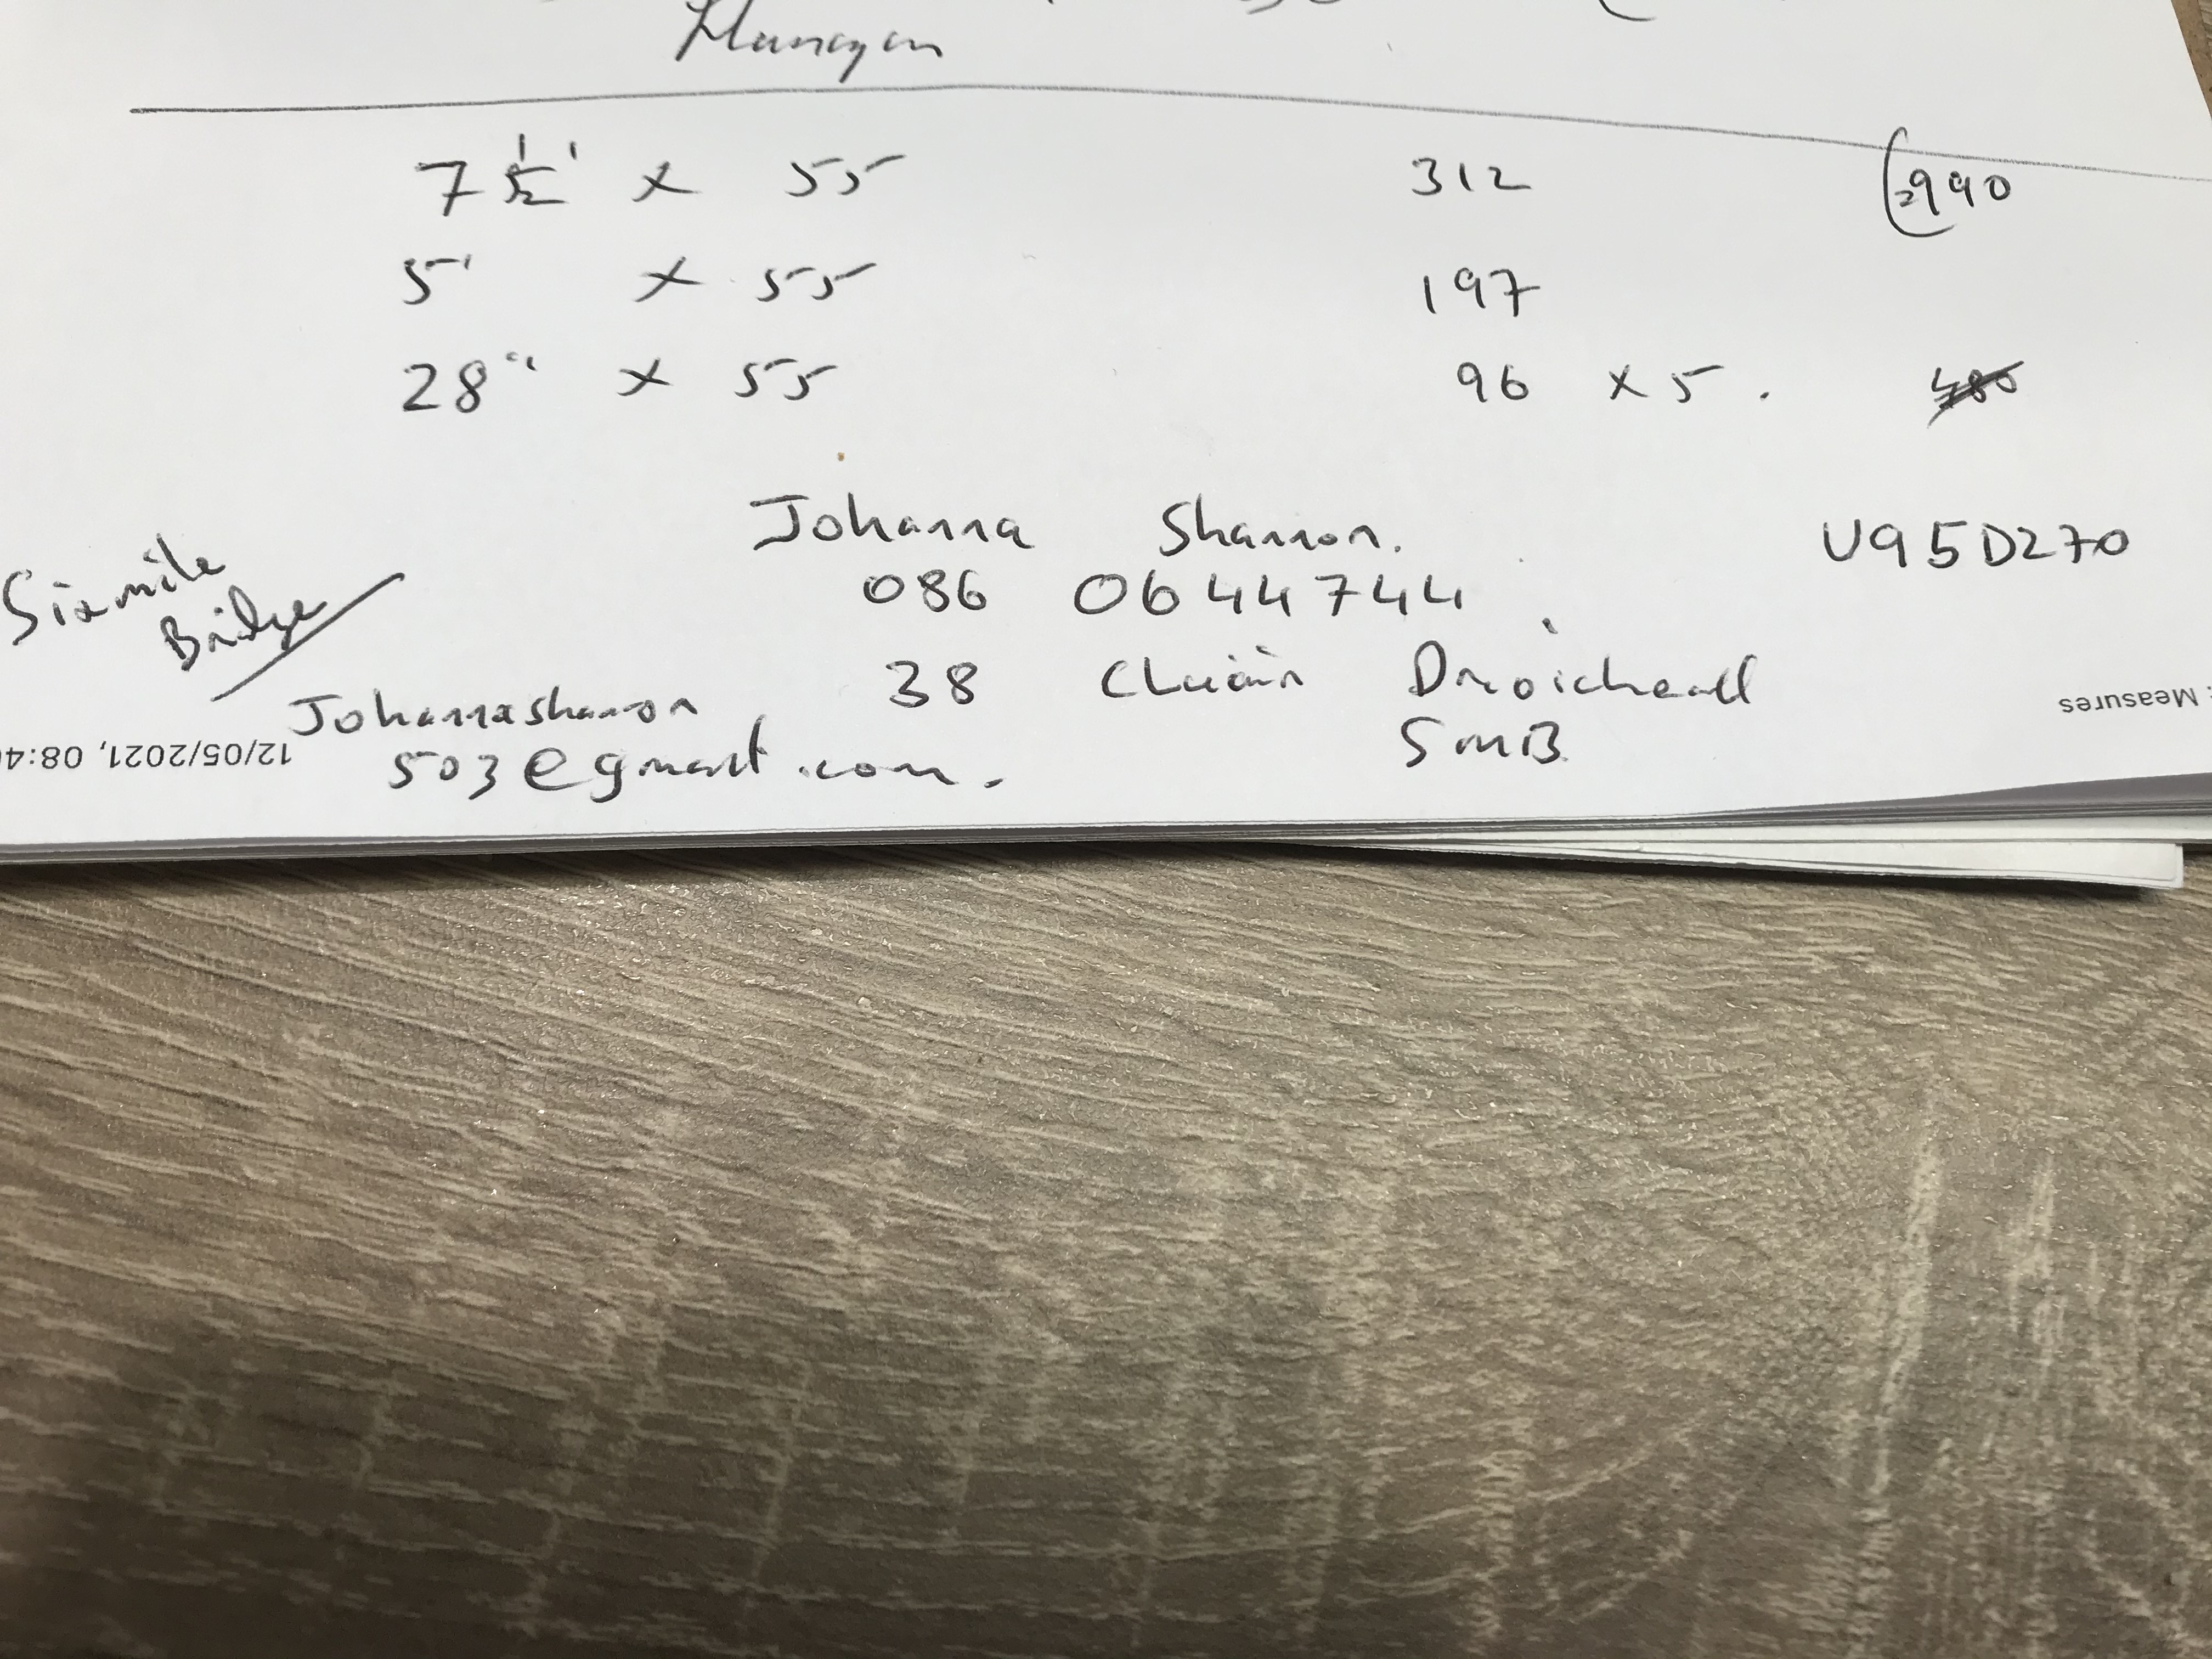 Flanagan
7 1/2' x 55 312 990
5' x 55 197
28" x 55 96 x 5. 480
Johanna Shannon. U95D270
086 0644744
Sixmile
Bridge
38 Cluain Droichead
SMB
Johannashannon
503@gmail.com.
: Measures
12/05/2021, 08:4